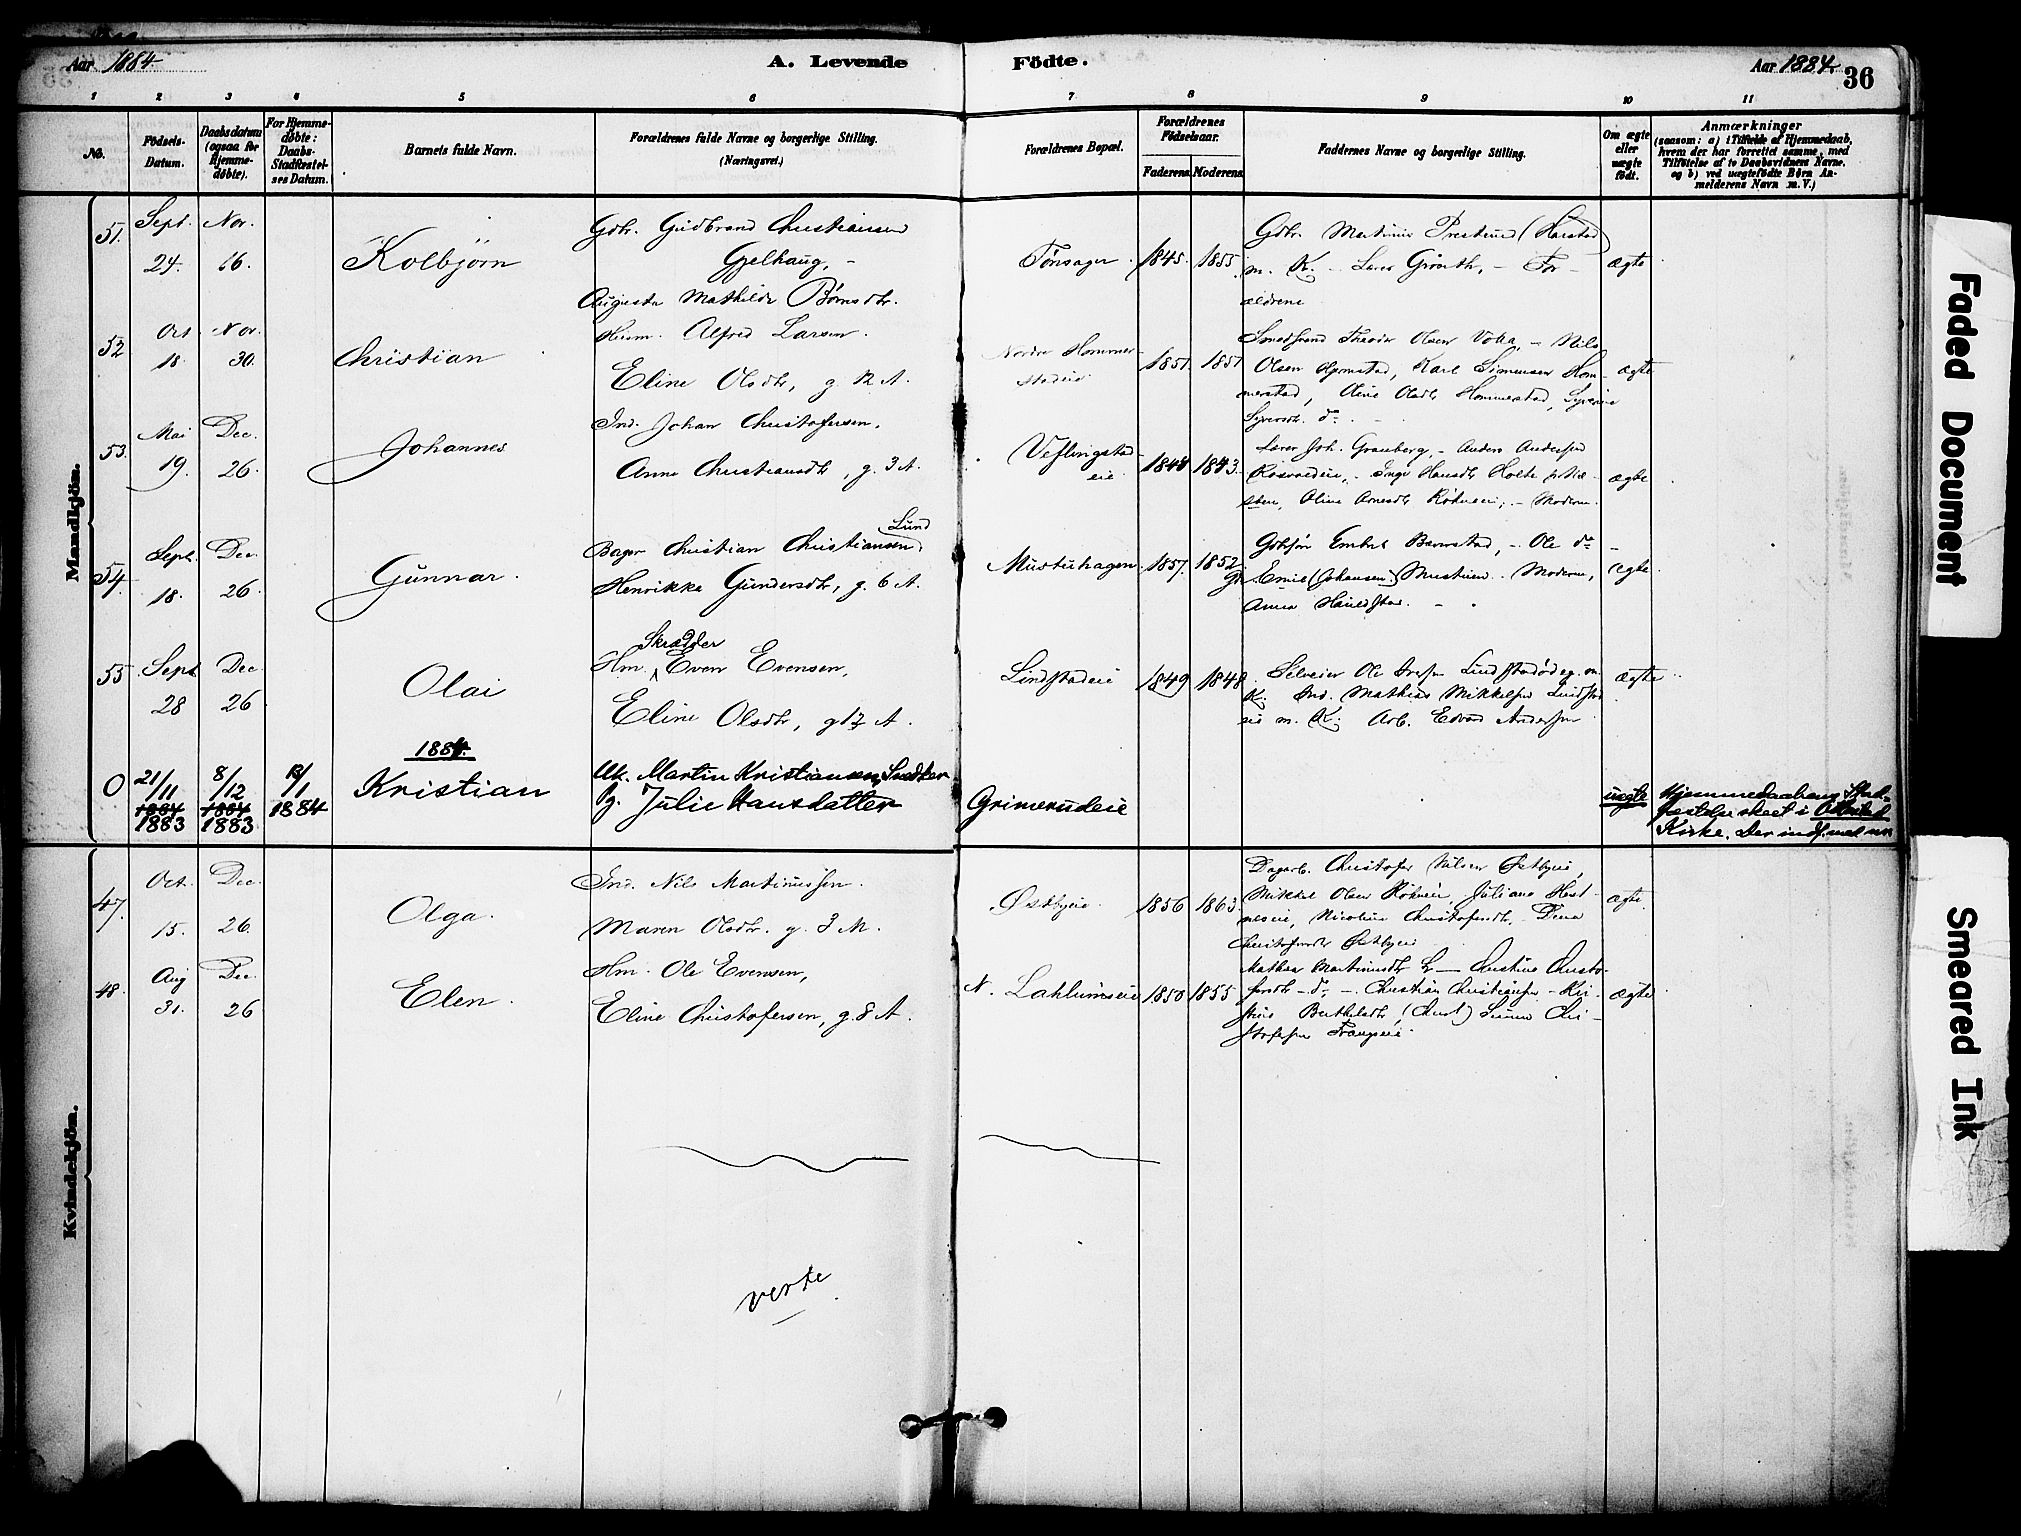 Aar 1884
A. Levende Födte.
Aar 1884. 36
1 2 3 4 5 6 7 8 9 10 11
No.
Födsels-
Datum.
Daabsdatum
(ogsaa for
Hjemme-
døbte).
For Hjemme-
døbte:
Daabs-
Stadfæstel-
ses Datum.
Barnets fulde Navn.
Forældrenes fulde Navne og borgerlige Stilling.
(Næringsvei.)
Forældrenes Bopæl.
Forældrenes
Födselsaar.
Faderens Moderens
Faddernes Navne og borgerlige Stilling.
Om ægte
eller
uægte
født.
Anmærkninger
(saasom: a) i Tilfælde af Hjemmedaab,
hvem der har forrettet samme, med
Tilføielse af to Daabsvidners Navne,
og b) ved uægtefødte Børn An-
melderens Navn m. V.)
Mandkjön.
51. Sept. 24. Nov. 16.
Kolbjörn
Gbr. Gudbrand Christiansen
Gjelhaug, -
Augusta Mathilde Börnsdtr.
Tönsager. 1845. 1855.
Gbr. Martinus Prestrud (Harstad)
m. K. - Lærer -
ældrene
ægte
52 Oct 18. Nov. 30.
Christian
Husm. Alfred Larsen.
Eline Olsdtr, g. 12 A.
Nordre Hommer-
stadeie 1851. 1851
Olsen Karl Simensen Hom-
merstad, Oline Olsdtr Hommerstad,
ægte
53. Mai 19. Dec. 26.
Johannes
Ind. Johan Christofersen.
Anne Christiansdtr, g. 3 A.
Veflingstad-
eie 1843.
Lærer Joh. Granberg, - Anders Andersen
Inge Hansdtr Holte
Oline Arnesdtr - Moderen.
ægte
54. Sept. 18. Dec. 26.
Gunnar.
Lund
Bager Christian Christiansen
Henrikke Gundersdtr, g. 6 A.
Mustuhagen. 1857. 1852
Embret - Ole do -
Emil (Johansen) Mustuen. Moderen,
Anna
ægte
55 Sept 28 Dec 26
Olai
Skrædder
Hm. Even Evensen,
Eline Olsdtr, g 12 A.
Lindstadeie 1849 1848.
Selveier Ole
K. Ind. Mathias Mikkelsen Lindstad
eie m. K. Arb. Edvard Andersen
ægte
0 21/11 1884 1883 8/12 1884 1883 13/1 1884
1884.
Kristian
Uk. Martin Kristiansen, Snedker
Pg. Julie Hansdatter
Grimerudeie
uægte
Hjemmedaabens Stad-
fæstelse skeet i Ottestad
Kirke. Der indf. med nr.
Kvindekjön.
47. Oct. 15. Dec. 26.
Olga.
Ind. Nils Martinussen.
Maren Olsdtr. g. 3 M.
Østbyeie. 1856 1863.
Dagarb. Christofer Nilsen Østbyeie,
Mikkel Olsen Juliane Hest-
næseie, Nicoline Christofersdtr.
Christofersdtr Østbyeie
ægte.
48. Aug 31. Dec. 26
Elen.
Hm. Ole Evensen,
Eline Christofersen, g. 8 A.
N. Lahlumseie 1850 1855
Mathea Martinusdtr - Christine Christo-
fersdtr - do, - Christian Christiansen - Kri-
stine Berthelsdtr, (Chri-
stofersen
ægte
verte
Faded Document
Smeared Ink